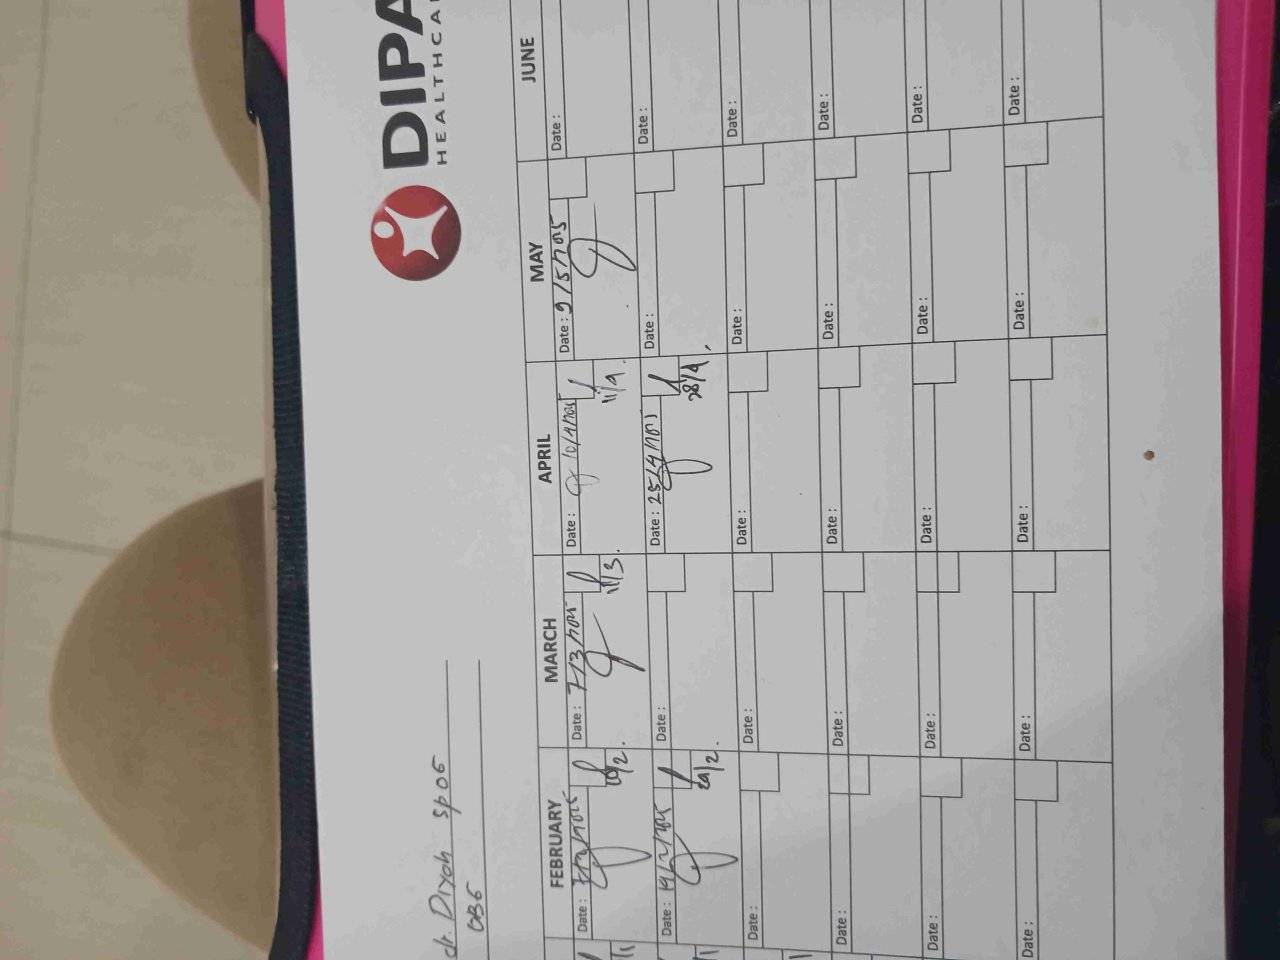 DIPA
HEALTHCA
dr. Diyah SpOG
OBG
FEBRUARY MARCH APRIL MAY JUNE
Date: Date: 7/3/2025 Date: 10/4/2025 Date: 9/5/2025 Date:
10/2. 11/3. 11/4.
Date: 19/2/2025 Date: Date: 25/4/2025 Date: Date:
20/2. 28/4.
Date: Date: Date: Date: Date:
Date: Date: Date: Date: Date:
Date: Date: Date: Date: Date:
Date: Date: Date: Date: Date: